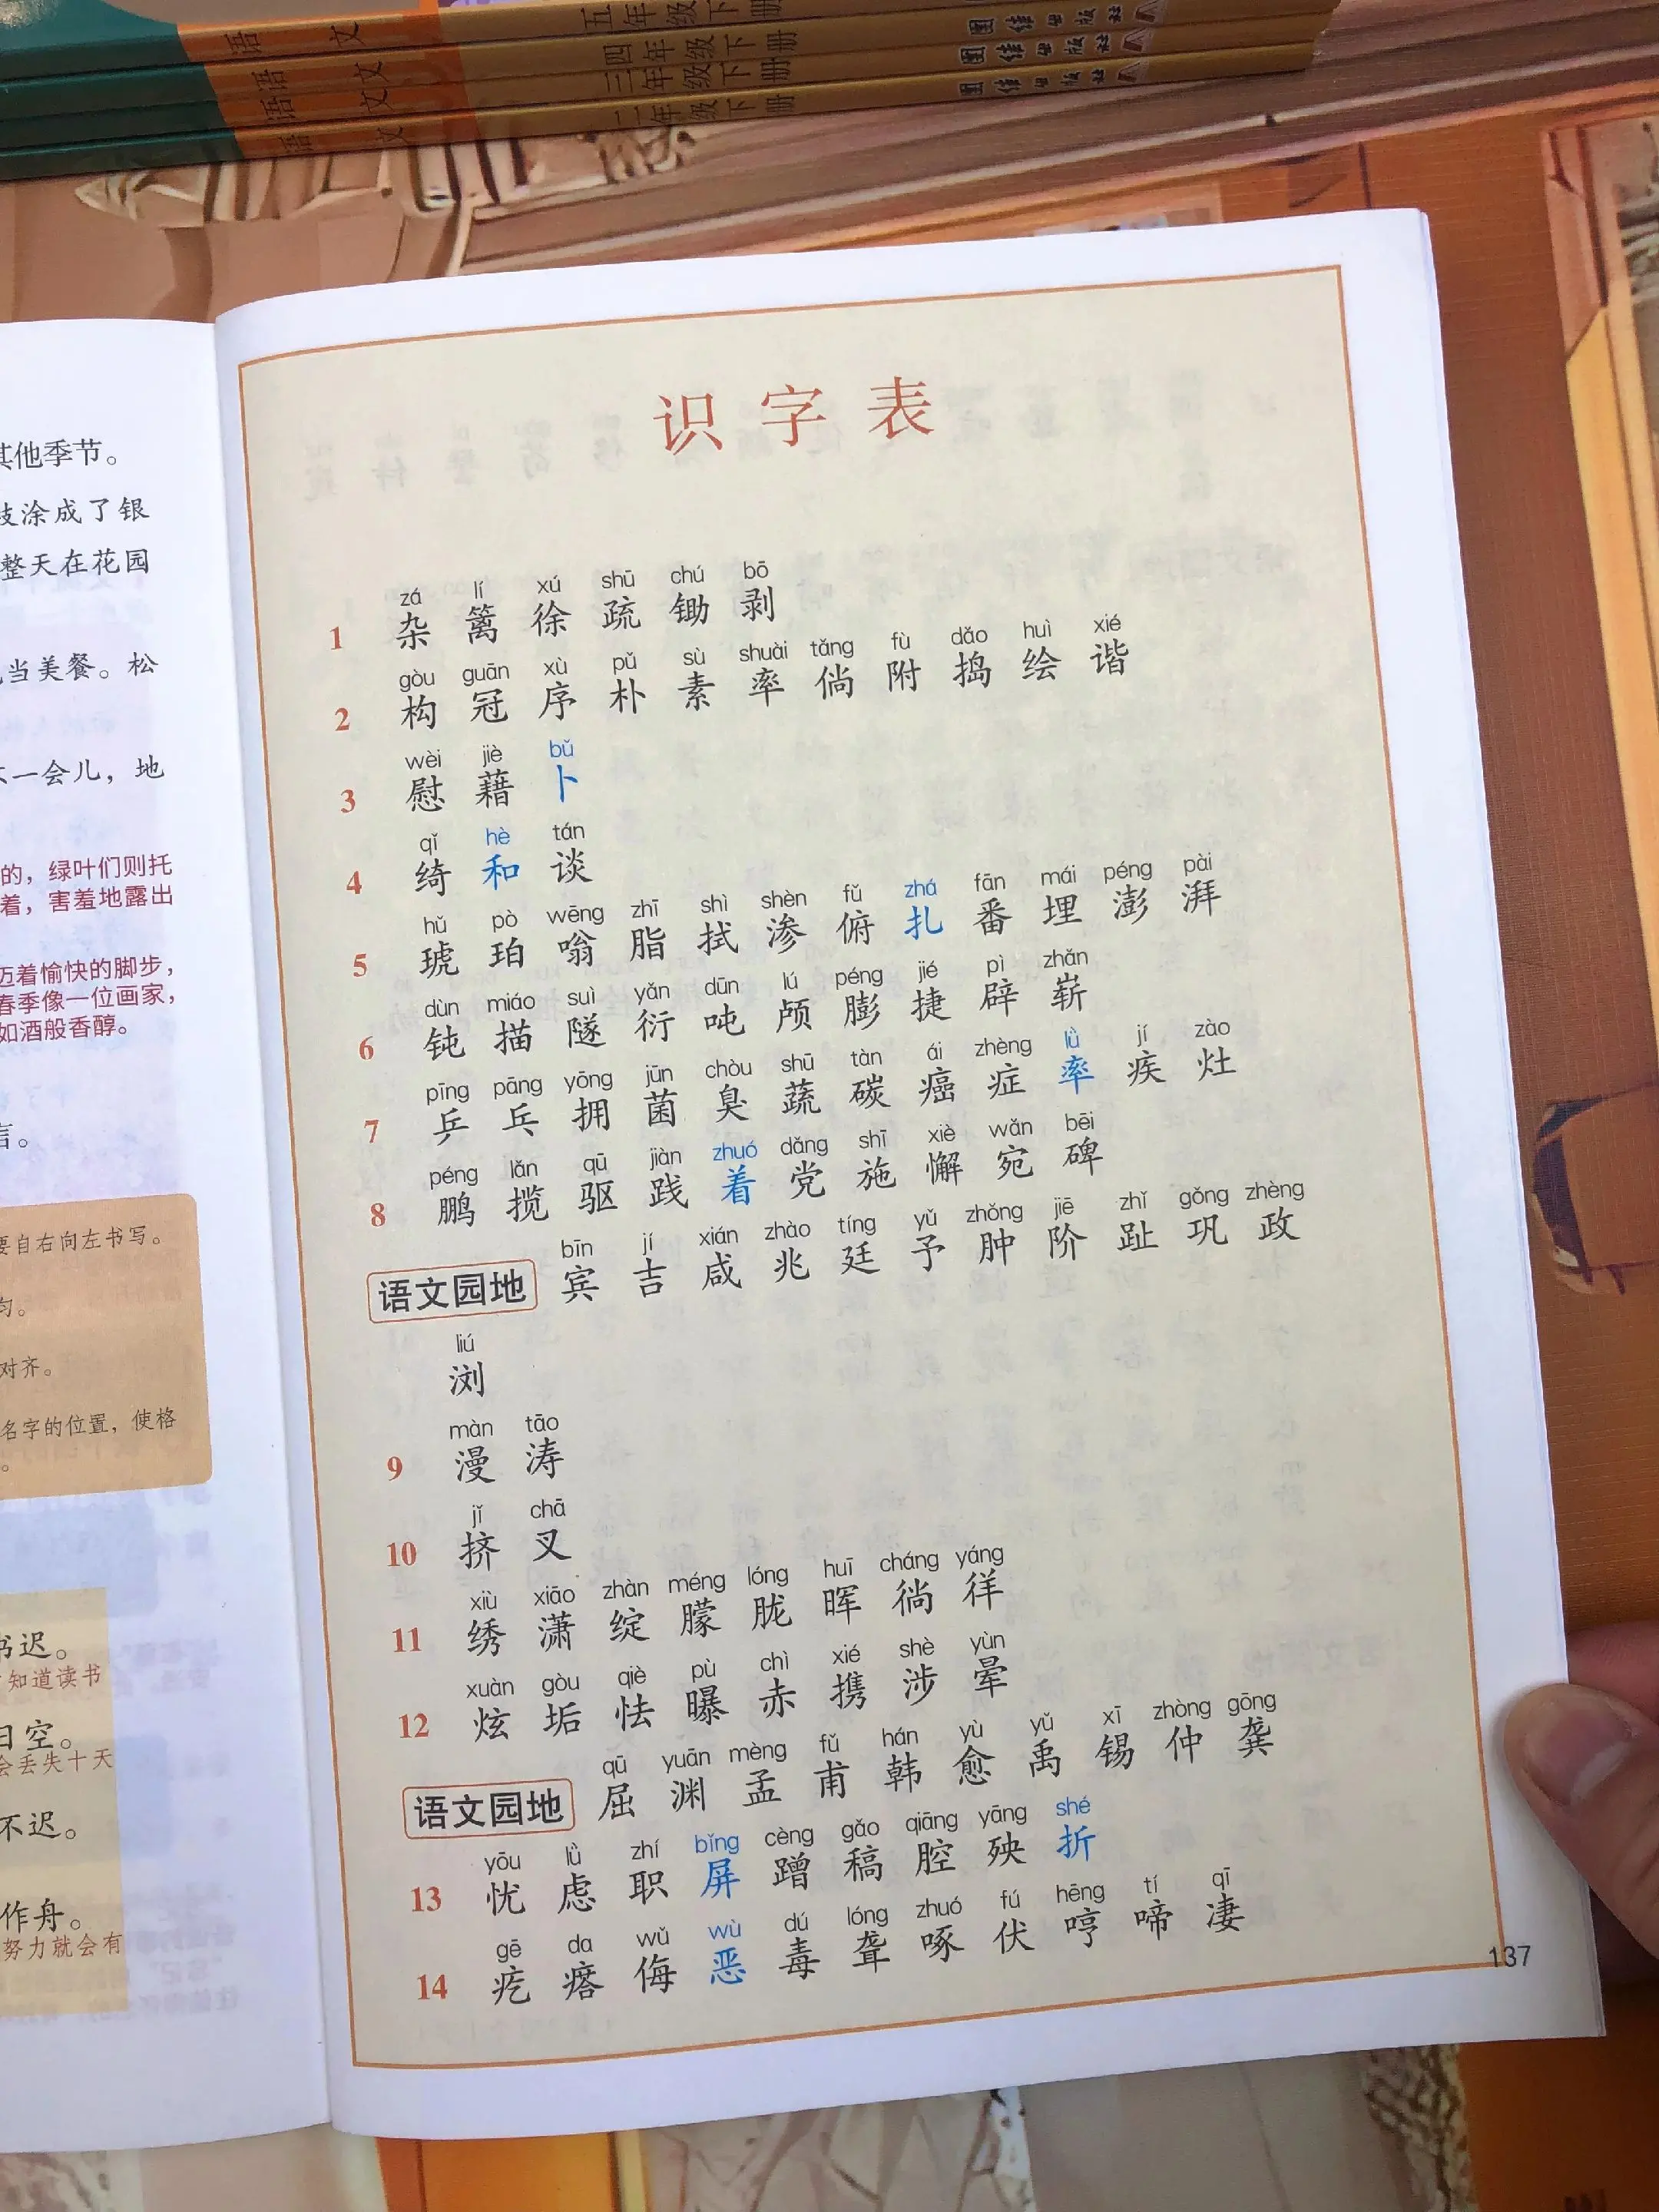 五年级下册
语 文 四年级下册 团结出版社
语 文 三年级下册 团结出版社
语 文 二年级下册 团结出版社
其他季节。
枝涂成了银
整天在花园
当美餐。松
不一会儿，地
的，绿叶们则托
着，害羞地露出
迈着愉快的脚步，
春季像一位画家，
如酒般香醇。
言。
要自右向左书写。
匀。
对齐。
名字的位置，使格
书迟。
知道读书
日空。
会丢失十天
不迟。
作舟。
努力就会有
识字表
zá lí xú shū chú bō
1 杂 篱 徐 疏 锄 剥
gòu guān xù pǔ sù shuài tǎng fù dǎo huì xié
2 构 冠 序 朴 素 率 倘 附 捣 绘 谐
wèi jiè bǔ
3 慰 藉 卜
qǐ hè tán
4 绮 和 谈
hǔ pò wēng zhī shì shèn fǔ zhá fān mái péng pài
5 琥 珀 嗡 脂 拭 渗 俯 扎 番 埋 澎 湃
dùn miáo suì yǎn dūn lú péng jié pì zhǎn
6 钝 描 隧 衍 吨 颅 膨 捷 辟 崭
pīng pāng yōng jūn chòu shū tàn ái zhèng lǜ jí zào
7 乒 乓 拥 菌 臭 蔬 碳 癌 症 率 疾 灶
péng lǎn qū jiàn zhuó dǎng shī xiè wǎn bēi
8 鹏 揽 驱 践 着 党 施 懈 宛 碑
bīn jí xián zhào tíng yǔ zhǒng jiē zhǐ gǒng zhèng
语文园地 宾 吉 咸 兆 廷 予 肿 阶 趾 巩 政
liú
浏
màn tāo
9 漫 涛
jǐ chā
10 挤 叉
xiù xiāo zhàn méng lóng huī cháng yáng
11 绣 潇 绽 朦 胧 晖 徜 徉
xuàn gòu qiè pù chì xié shè yùn
12 炫 垢 怯 曝 赤 携 涉 晕
qū yuān mèng fǔ hán yù yǔ xī zhòng gōng
语文园地 屈 渊 孟 甫 韩 愈 禹 锡 仲 龚
yōu lǜ zhí bǐng cèng gǎo qiāng yāng shé
13 忧 虑 职 屏 蹭 稿 腔 殃 折
gē da wǔ wù dú lóng zhuó fú hēng tí qī
14 疙 瘩 侮 恶 毒 聋 啄 伏 哼 啼 凄
137